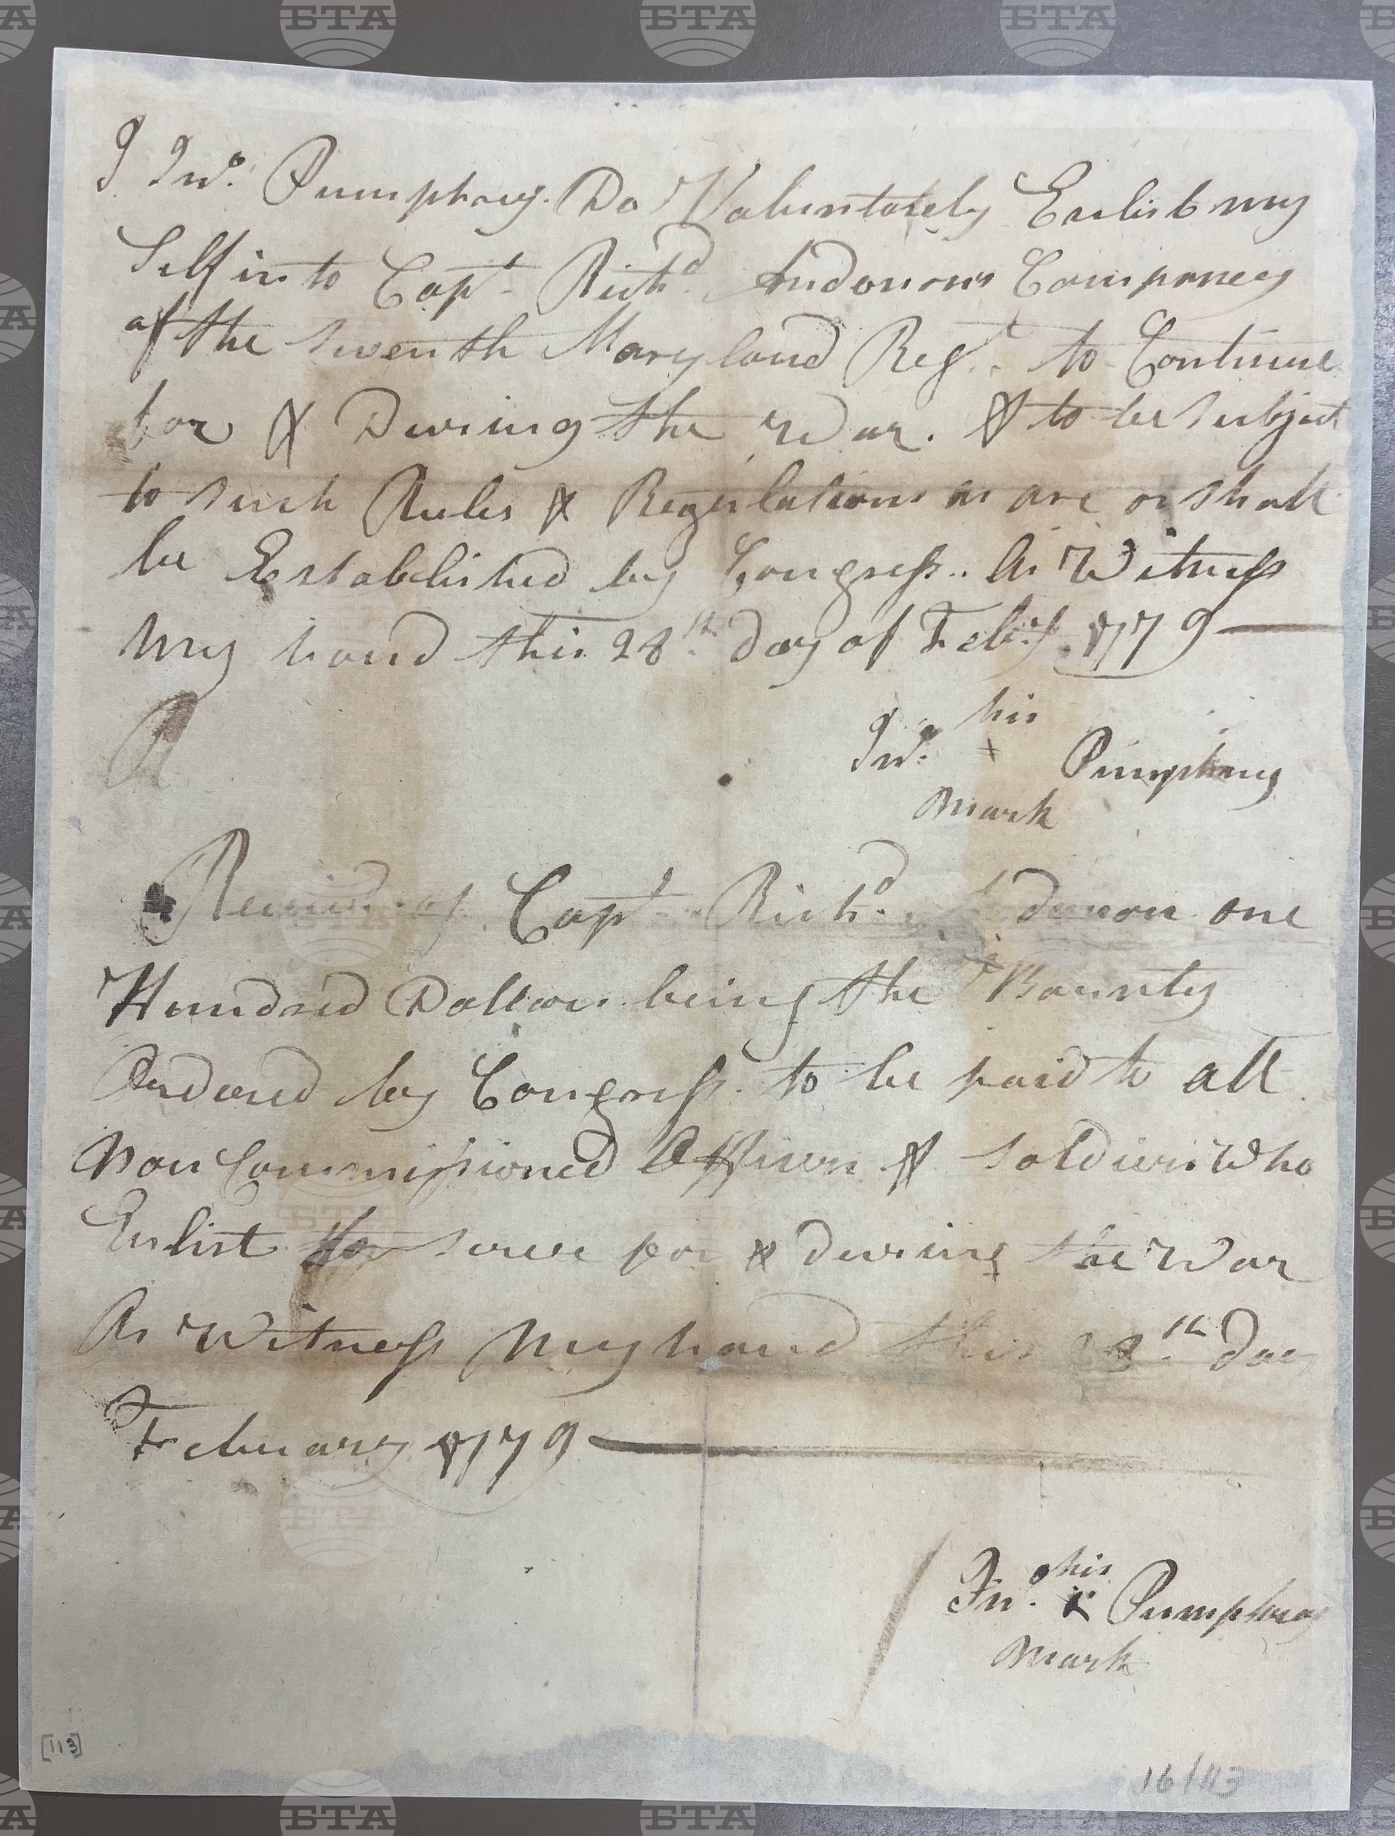 I Jno. Pumphrey. Do Voluntarely Enlist my
Self into Capt. Richd. Andersons Companey
of the seventh Maryland Regt. to Continue
for & During the War. & to be subject
to such Rules & Regulations as are or shall
be Established by Congress. As Witness
My hand this 28th. day of Feby. 1779
his
Jno. x Pumphrey
mark
Receivd of Capt. Richd. one
Hundred Dollars being the Bounty
Ordered by Congress. to be paid to all
Non Commissioned Officers & Soldiers Who
Enlist to serve for & during the War
As Witness My hand this 28th. Day
February 1779
his
Jno. x Pumphrey
mark
[113]
16/113
БТА